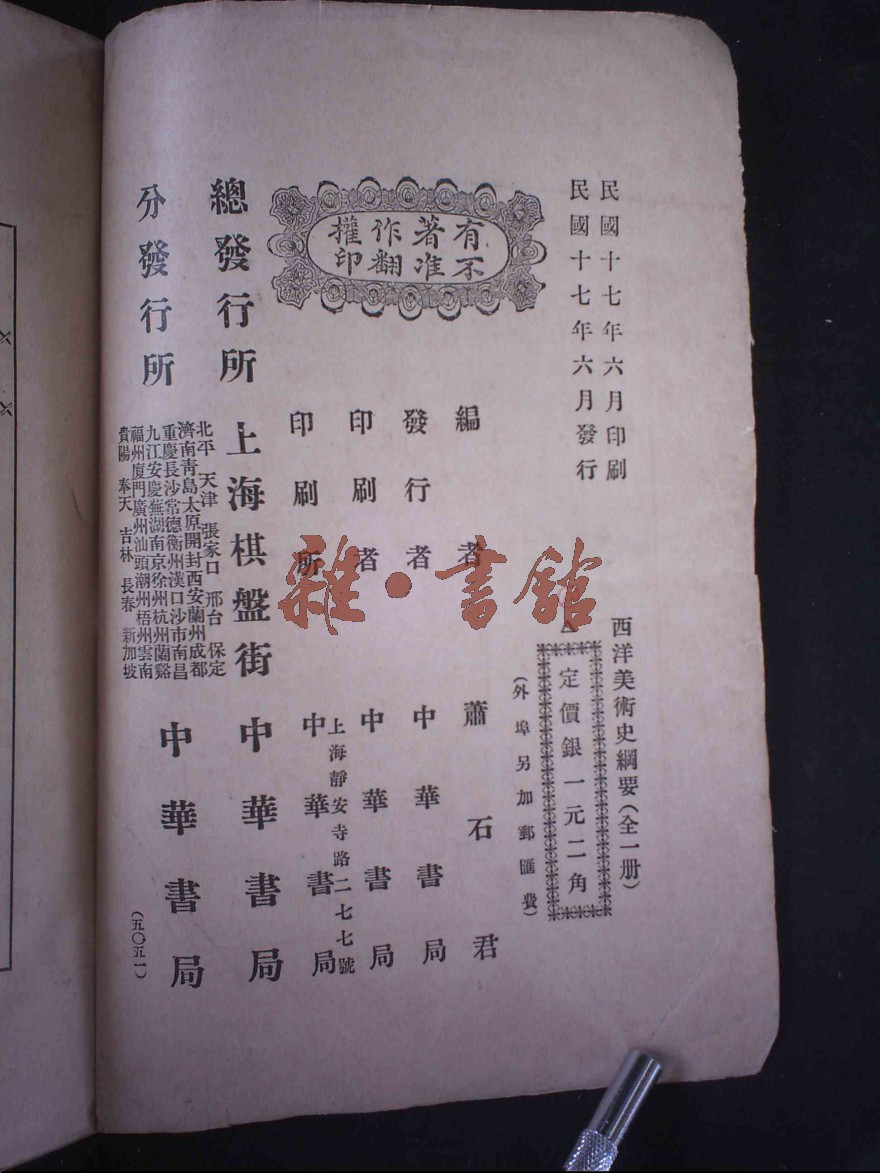 民國十七年六月印刷
民國十七年六月發行
西洋美術史綱要(全一册)
定價銀一元二角
(外埠另加郵匯費)
有著作權
不准翻印
編者 蕭石君
發行者 中華書局
印刷者 中華書局
上海靜安寺路二七七號
印刷所 中華書局
總發行所 上海棋盤街 中華書局
分發行所
北平 天津 張家口 邢台 保定
濟南青島太原開封西安蘭州成都
重慶長沙常德衡州漢口沙市南昌
九江安慶蕪湖南京徐州杭州蘭谿
福州廈門廣州汕頭潮州梧州雲南
貴陽 奉天 吉林 長春 新加坡
中華書局
(五〇五一)
雜·書館